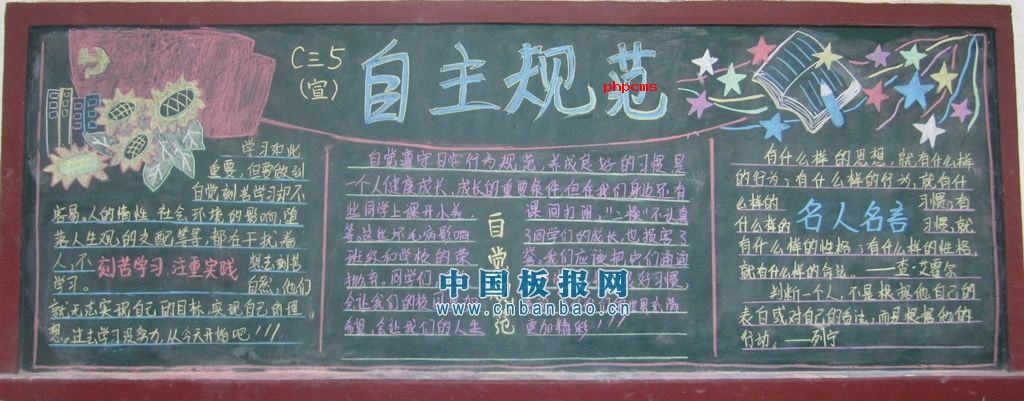 C三5
(宣)
自主规范
phpcms
学习如此
重要，但要做到
自觉刻苦学习却不
容易，人的惰性，社会环境的影响，堕
落人生观的支配等等，都在干扰着
人，不
刻苦学习，注重实践
想去刻苦
学习。
自然，他们
就无法实现自己的目标，实现自己的理
想。过去学习没努力，从今天开始吧！！！
自觉遵守日常行为规范，养成良好的习惯，是
一个人健康成长、成长的重要条件，但在我们身边还有
些同学上课开小差，
课间打闹，“操”不认真
等，这些坏毛病影响
了同学们的成长，也损害了
班级和学校的荣
誉，我们应该把它们通通
抛弃。同学们
好习惯，
会让我们的校园
世界充满
希望，会让我们的人生
更加精彩！！！
自觉
范
中国板报网
www.cnbanbao.cn
有什么样的思想，就有什么样
的行为；有什么样的行为，就有什
么样的
习惯；有
什么样的
习惯，就
名人名言
有什么样的性格；有什么样的性格，
就有什么样的命运。——查·艾霍尔
判断一个人，不是根据他自己的
表白或对自己的看法，而是根据他的
行动。——列宁